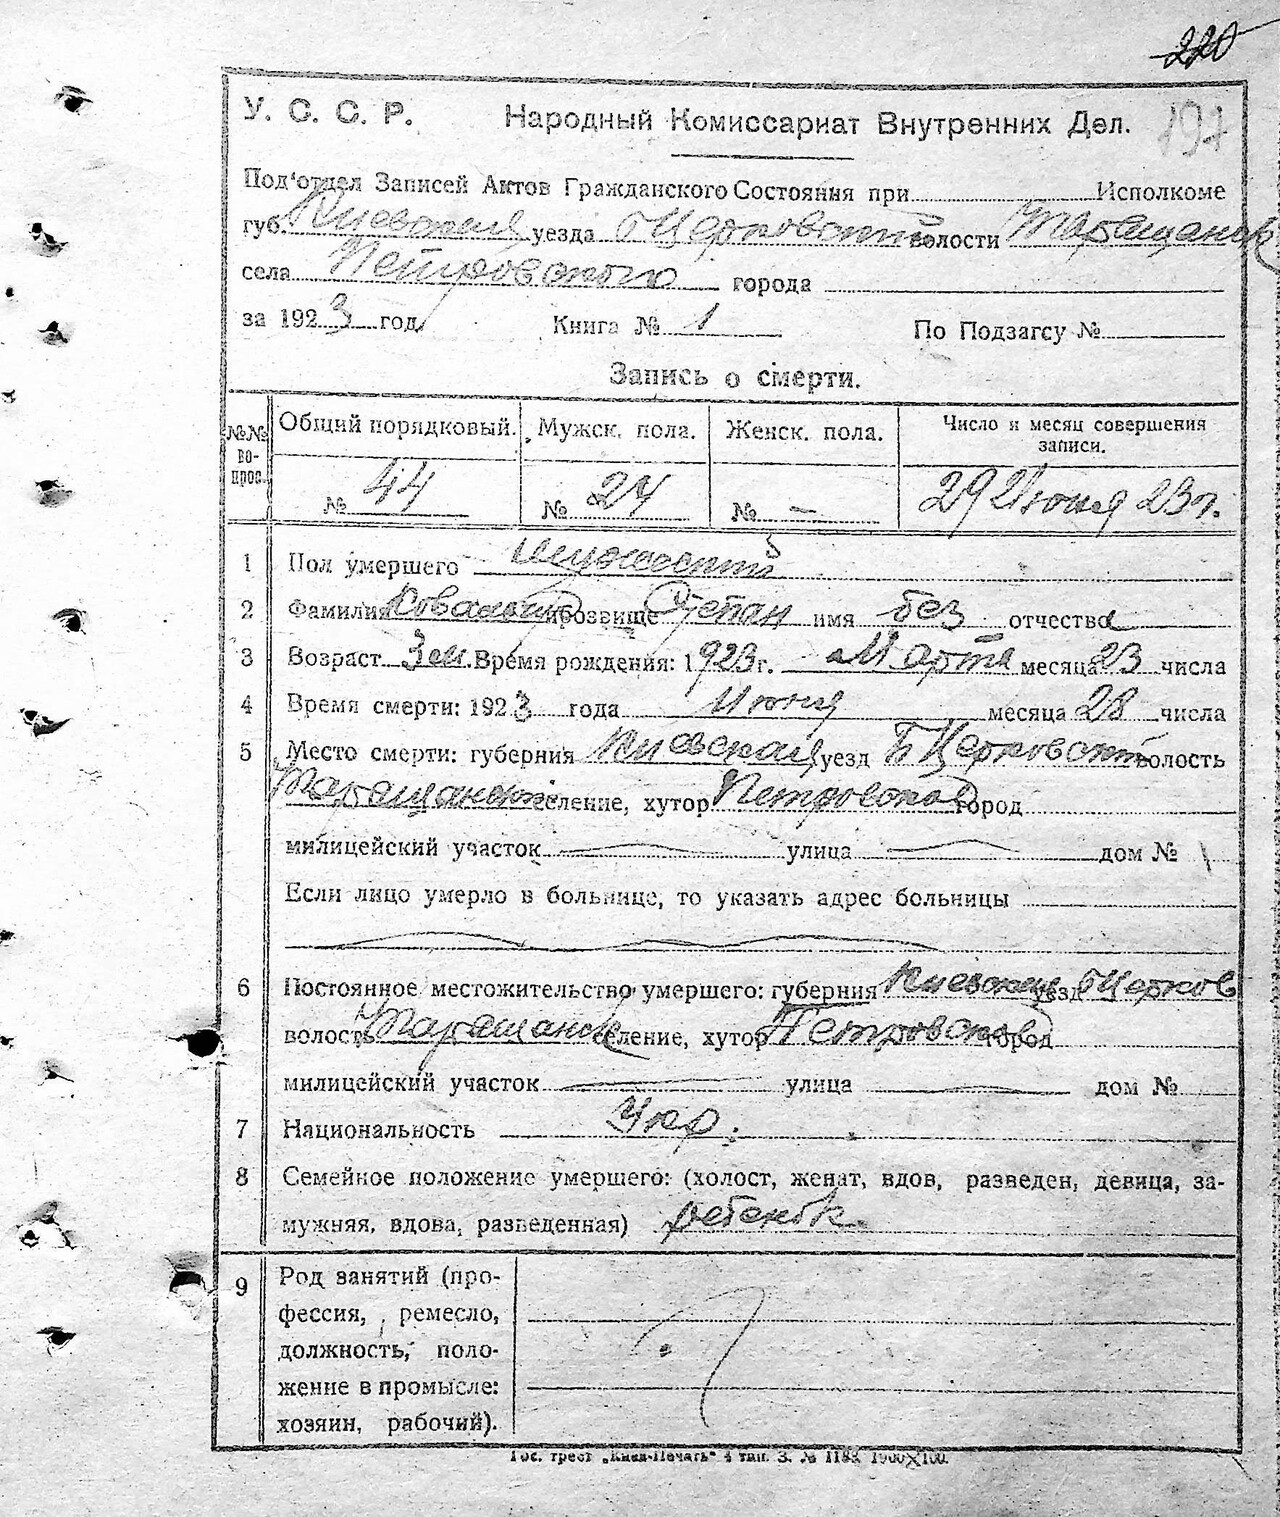 220
У. С. С. Р. Народный Комиссариат Внутренних Дел. 197
Под'отдел Записей Актов Гражданского Состояния при Исполкоме
губ. Киевская уезда БЦерковский волости Таращанск
села Петровского города
за 1923 год Книга № 1 По Подзагсу №
Запись о смерти.
№№ вопрос. Общий порядковый. Мужск. пола. Женск. пола. Число и месяц совершения записи.
№ 44 № 27 № - 29 Июня 23 г.
1 Пол умершего Мужеский
2 Фамилия прозвище Степан имя без отчества
3 Возраст 3 м. Время рождения: 1923 г. Марта месяца 23 числа
4 Время смерти: 1923 года Июня месяца 28 числа
5 Место смерти: губерния Киевская уезд БЦерковский волость
Таращанск селение, хутор Петровское город
милицейский участок улица дом №
Если лицо умерло в больнице, то указать адрес больницы
6 Постоянное местожительство умершего: губерния Киевская уезд БЦерков
волость Таращанск селение, хутор Петровское город
милицейский участок улица дом №
7 Национальность Укр.
8 Семейное положение умершего: (холост, женат, вдов, разведен, девица, за-
мужняя, вдова, разведенная) ребенок.
9 Род занятий (про-
фессия, ремесло,
должность, поло-
жение в промысле:
хозяин, рабочий).
Гос. трест „Киев-Печать“ 4 тип. З. № 1188 1900×100.